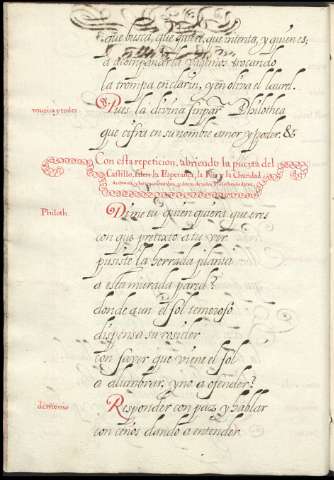 que busca, que quiere, que intenta, y quien es,
a acompañarla vamos tocando
la trompa en clarin, y en oliva el laurel.
musica y todos
Pues la divina sinpar Philothea
que cifra en su nombre amor y poder. &
Con esta repeticion, abriendo la puerta del
Castillo, salen la Esperança, la Fee, y la Charidad
Philoth.
Dime tu quien quiera que eres
con que pretexto a tu ver
pusiste la herrada planta
a esta murada pared?
donde aun el sol temeroso
dispensa su rosicler
con saver que viene el sol
a alumbrar, y no a ofender?
demonio
Responder con paz y hablar
con ceños dando a entender